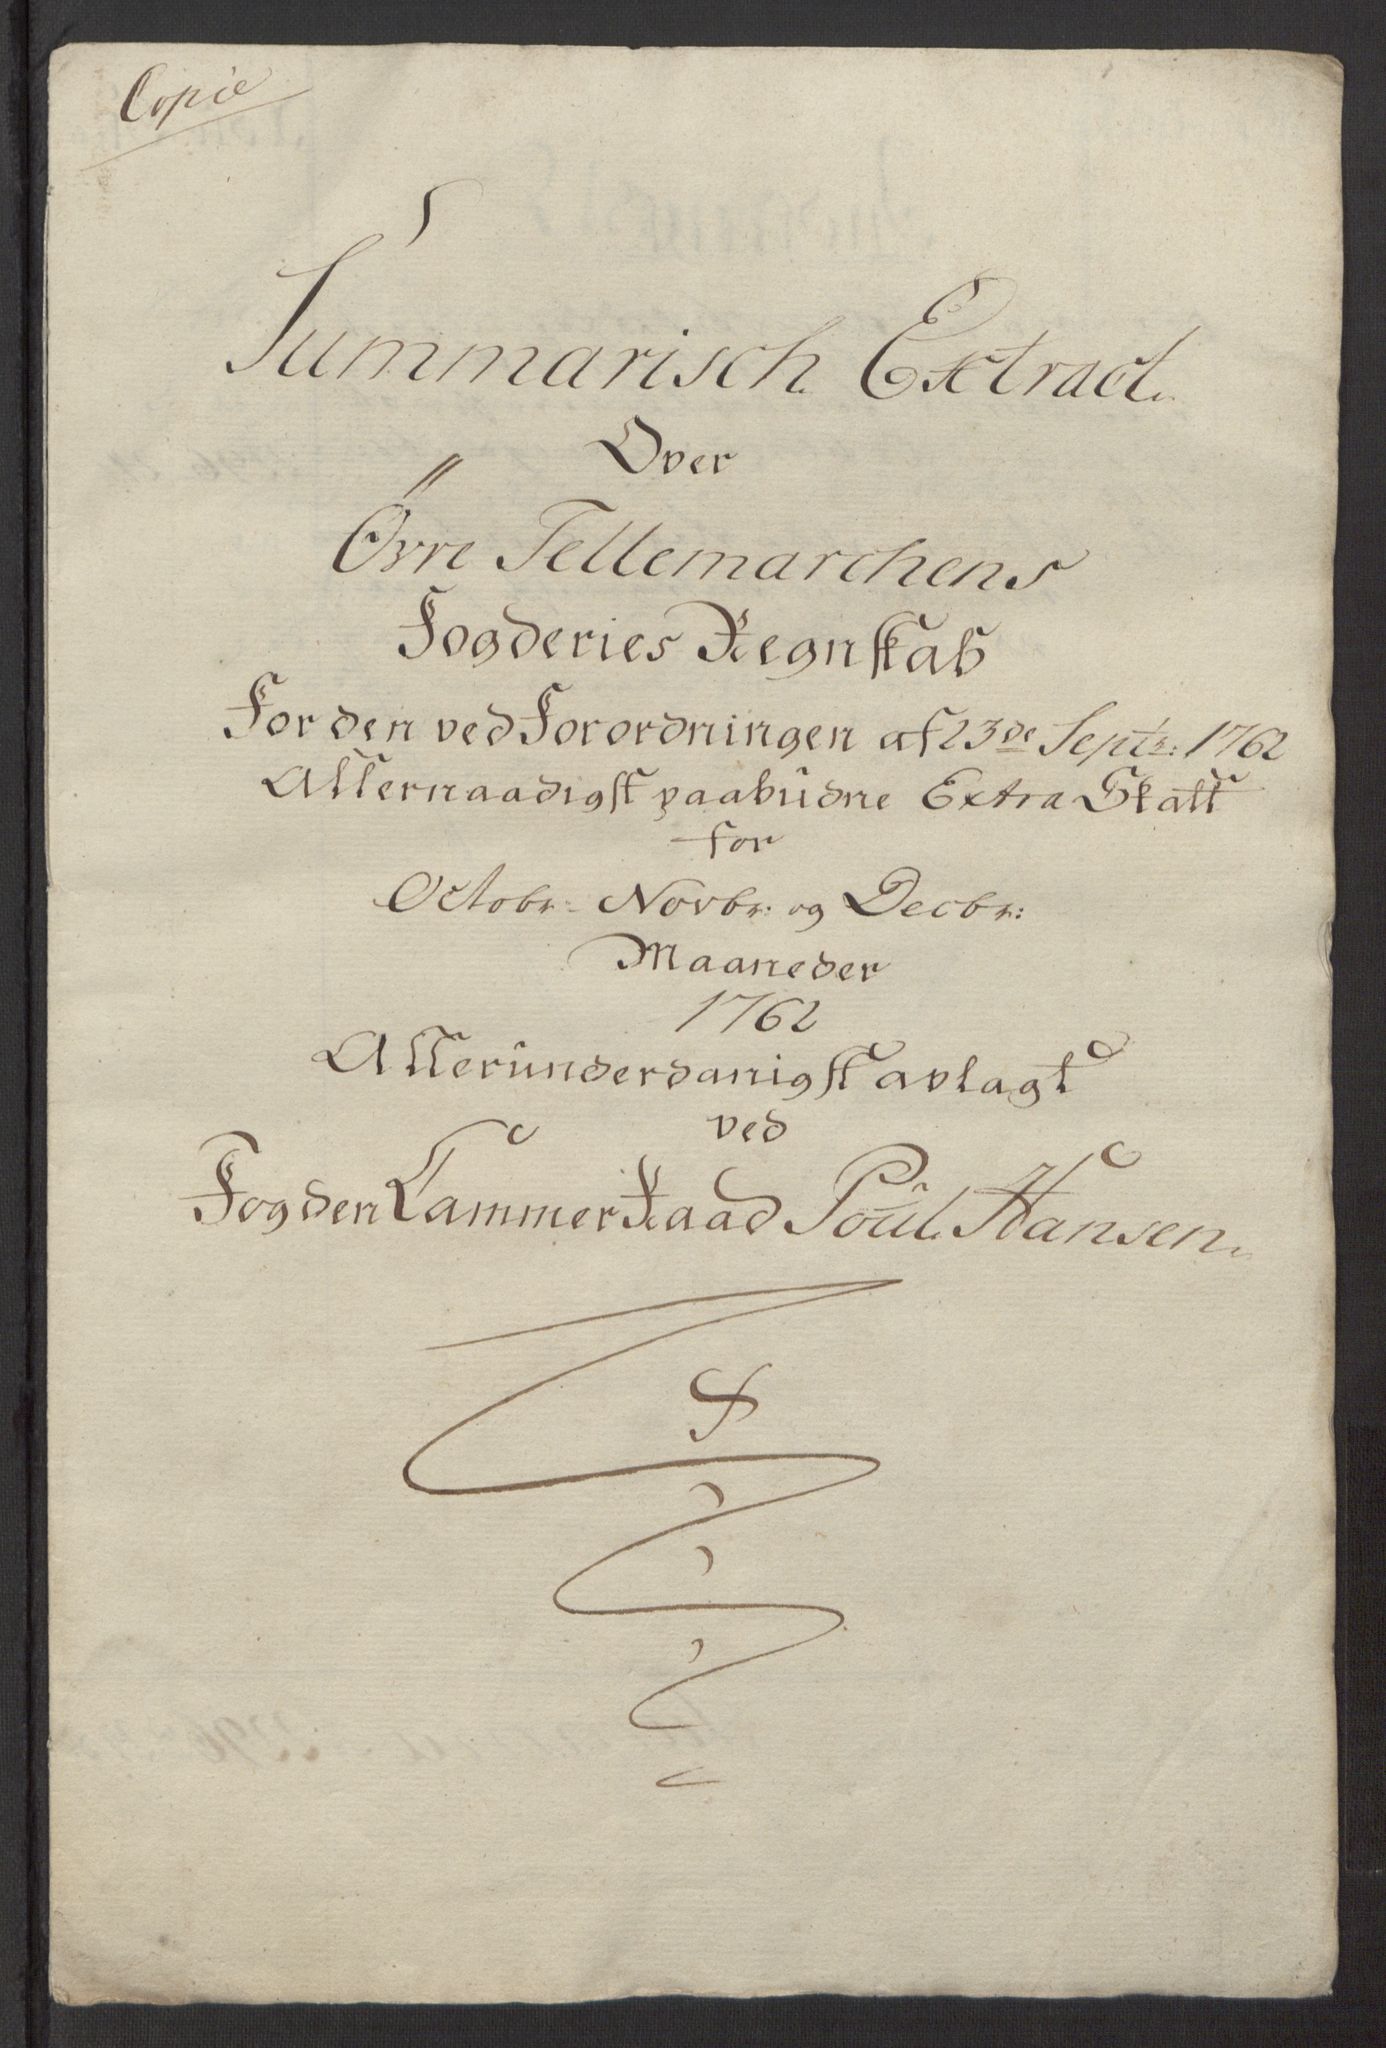 Copie
Summarisch Extract
Over
Øvre Tellemarchens
Fogderies Regnskab
For den ved Forordningen af 23de Septr: 1762
Allernaadigst paabudne Extra Skatt
for
Octobr: Novbr: og Decbr:
Maaneder
1762
Allerunderdanigst avlagt
ved
Fogden Cammer Raad Poul Hansen